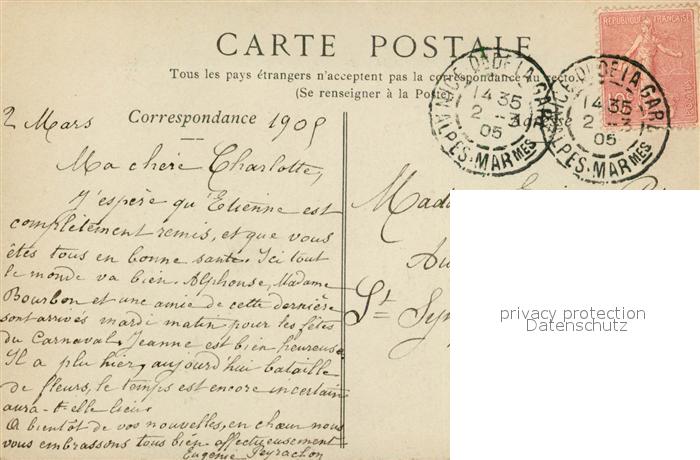 RÉPUBLIQUE FRANÇAISE
CARTE POSTALE
Tous les pays étrangers n'acceptent pas la correspondance au recto
(Se renseigner à la Poste)
NICE Pl. DE LA GARE
14 35
2 -3
05
ALPES-MARMES
NICE Pl. DE LA GARE
14 35
2 -3
05
ALPES-MARMES
Correspondance
2 Mars 1905
Ma chère Charlotte,
J'espère qu'Etienne est
complètement remis, et que vous
êtes tous en bonne santé. Ici tout
le monde va bien. Alphonse, Madame
Bourbon et une amie de cette dernière
sont arrivés mardi matin pour les fêtes
du Carnaval. Jeanne est bien heureuse.
Il a plu hier, aujourd'hui bataille
de fleurs, le temps est encore incertain
aura-t-elle lieu.
A bientôt de vos nouvelles, en chœur nous
vous embrassons tous bien affectueusement
Eugénie Peyrachon
Mada
Au
St Sy
privacy protection
Datenschutz